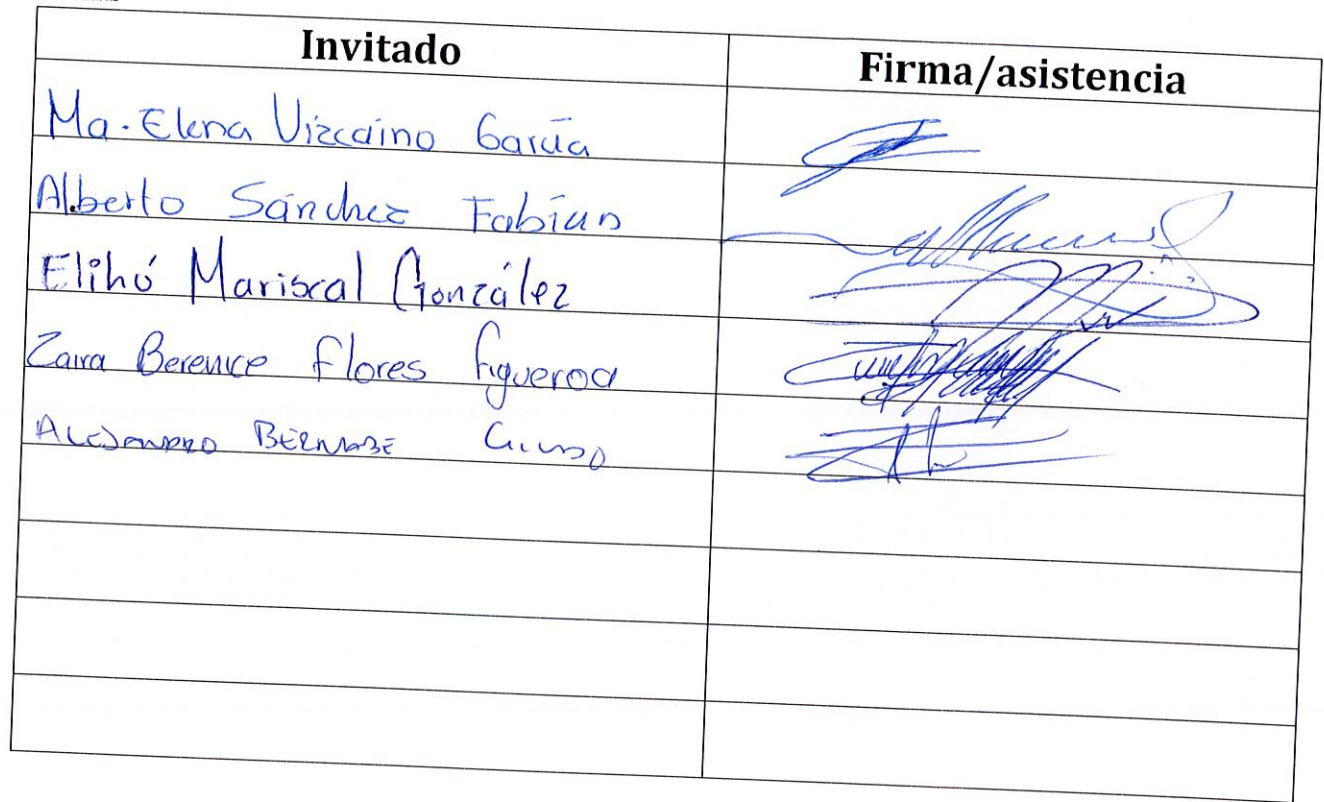 Invitado Firma/asistencia
Ma. Elena Vizcaino García
Alberto Sánchez Fabian
Elihú Mariscal González
Zaira Berenice Flores Figueroa
ALEJANDRO BERNABE